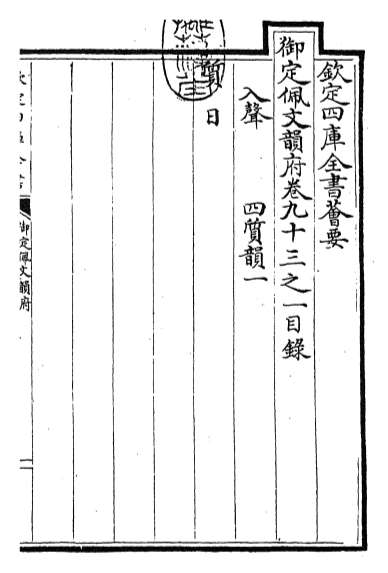 欽定四庫全書薈要
御定佩文韻府卷九十三之一目錄
入聲　　四質韻一
質
日
御定佩文韻府
一